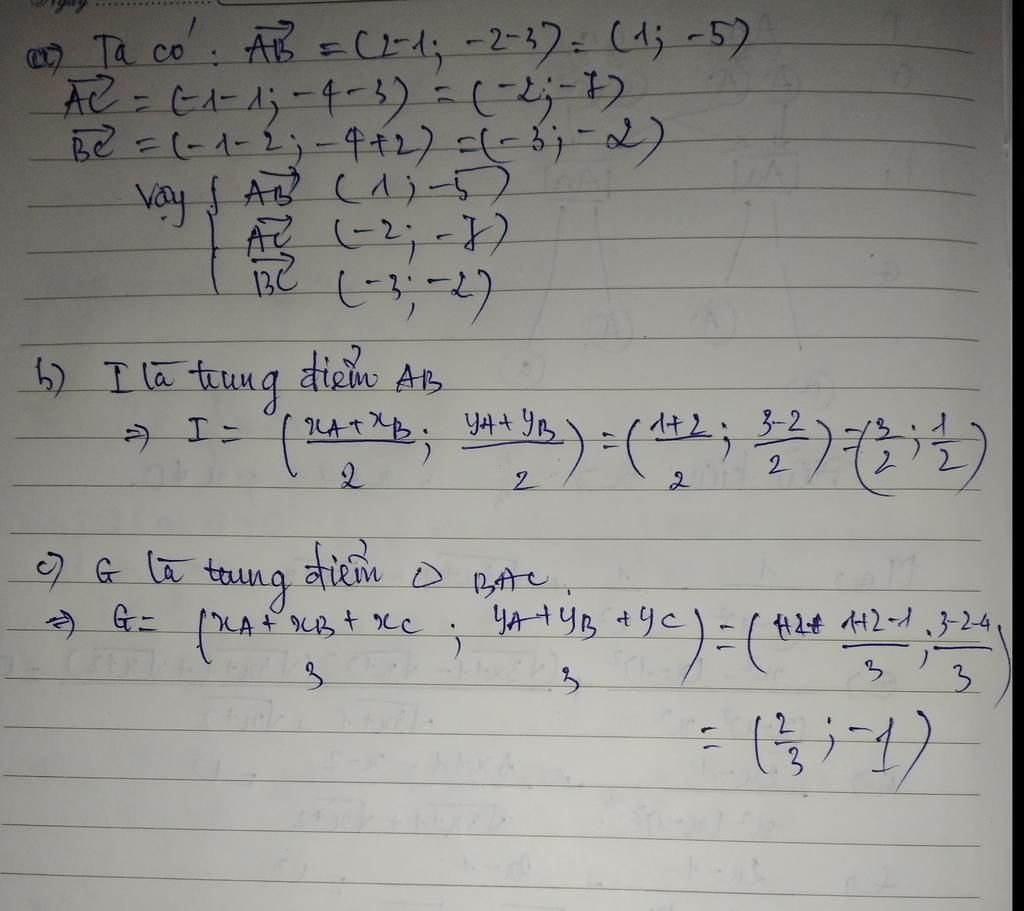 Ngày
a) Ta có: AB→ = (2-1; -2-3) = (1; -5)
AC→ = (-1-1; -4-3) = (-2; -7)
BC→ = (-1-2; -4+2) = (-3; -2)
Vậy { AB→ (1; -5)
AC→ (-2; -7)
BC→ (-3; -2)
b) I là trung điểm AB
=> I = ((xA+xB)/2; (yA+yB)/2) = ((1+2)/2; (3-2)/2) = (3/2; 1/2)
c) G là trung điểm △ BAC.
=> G = ((xA+xB+xC)/3; (yA+yB+yC)/3) = ((1+2-1)/3; (3-2-4)/3)
= (2/3; -1)